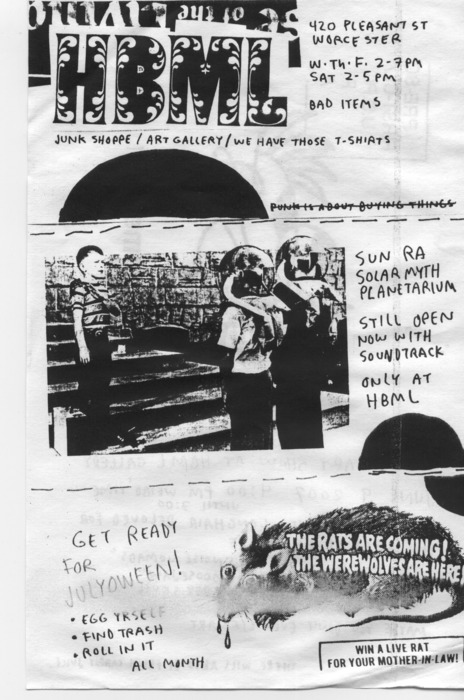 of the
HBML
420 PLEASANT ST
WORCESTER
W. Th. F. 2-7PM
SAT 2-5PM
BAD ITEMS
JUNK SHOPPE / ART GALLERY / WE HAVE THOSE T-SHIRTS
PUNK IS ABOUT BUYING THINGS
SUN RA
SOLAR MYTH
PLANETARIUM
STILL OPEN
NOW WITH
SOUNDTRACK
ONLY AT
HBML
GET READY
FOR
JULYOWEEN!
• EGG YRSELF
• FIND TRASH
• ROLL IN IT
ALL MONTH
THE RATS ARE COMING!
THE WEREWOLVES ARE HERE!
WIN A LIVE RAT
FOR YOUR MOTHER-IN-LAW!